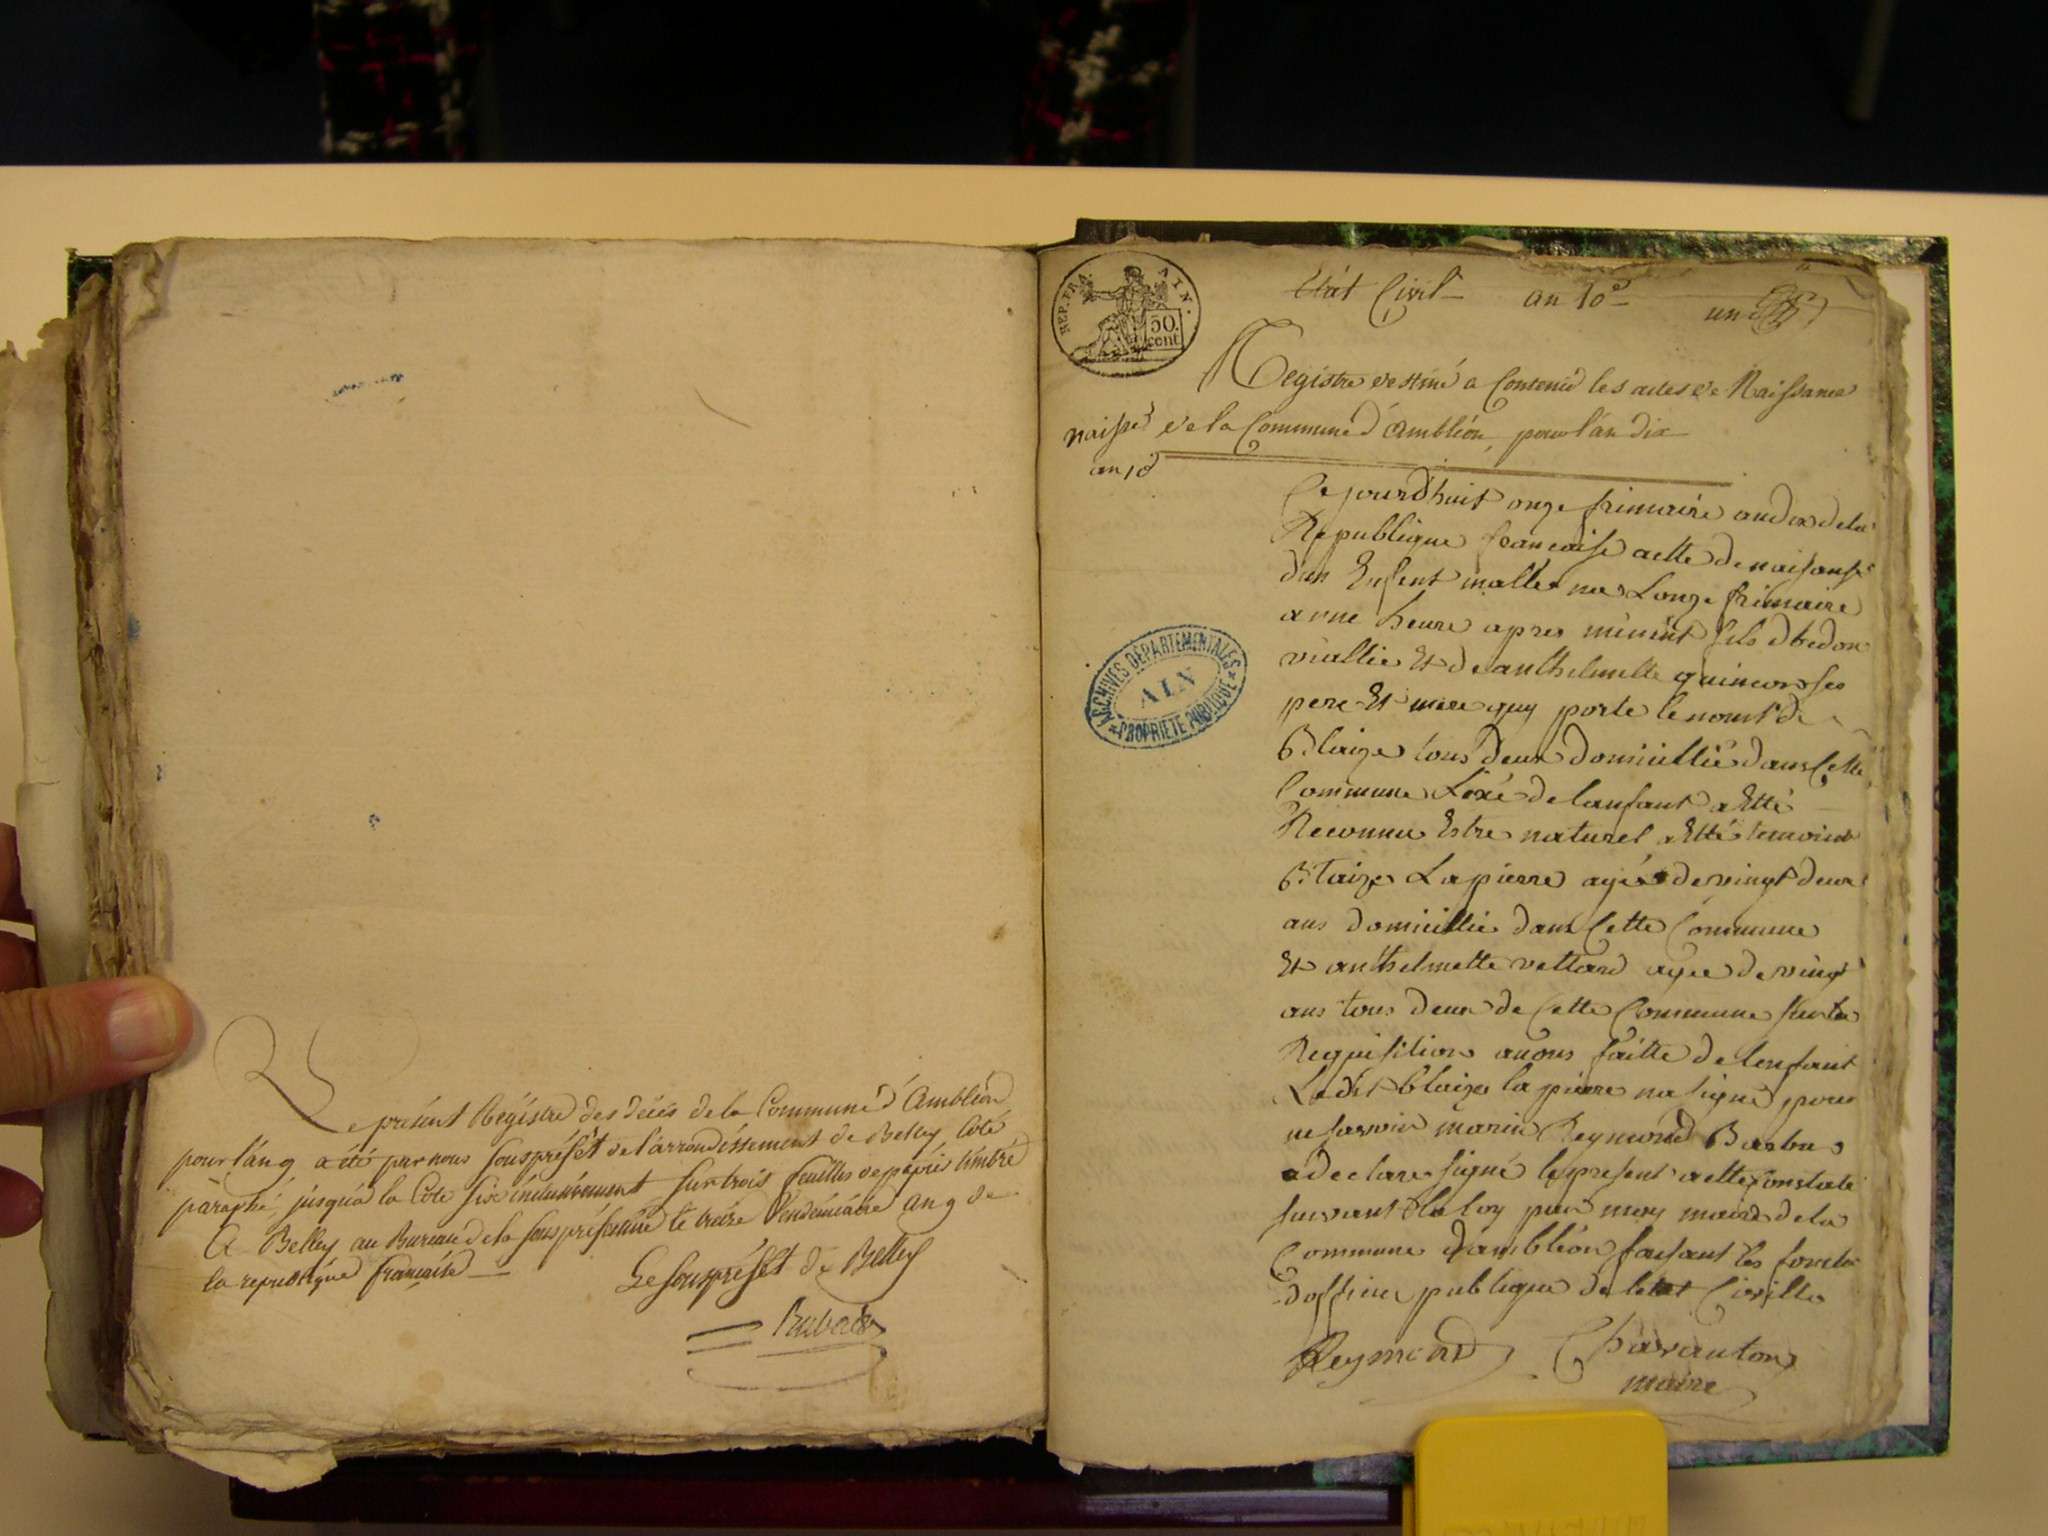 Le présent Régistre des décés de la Commune d'Ambléon
pour l'an 9 a été par nous souspréfêt de l'arrondissement de Belley Coté
paraphé, jusqu'a la Cote six inclusivement sur trois feuilles de papier timbré
A Belley au Bureau de la souspréfecture le treize Vendémiaire an 9 de
la republique française
Le souspréfêt de Belley
REP. FRA. AIN.
50.
cent.
Etat Civil an 10e un
Registre destiné a Contenir les actes de Naissance
de la Commune d'Ambléon, pour l'an dix
naisse
an 10
Ce jourdhuit onze frimaire an dix de la
Republique francaise actte de naisanse
dun Enfent malle na Longe frimaire
a une heure apres minuit fils de bedon
viallie Et de anthelmette quineors ses
pere Et mere quy porte le nomt de
Blaize tous deux domicillié dans Cette
Commune Lexe de lanfant a Etté
Reconnu Estre naturel a Etté temoins
Blaize Lapierre agé de vingt deux
ans domicillié dans Cette Commune
Et anthelmette vettard agee de vingt
ans tous deux de Cette Commune sur la
Requisition a nous faitte de lenfant
Ledit blaize la pierre na signé pour
ne savoir marie Reymond Barbu
a declare signé le present actte Constaté
suivant la loy par moy maire de la
Commune d'ambléon faisant les foncts
dofficier publique de letat Civille
Reymond Charauton
maire
ARCHIVES DÉPARTEMENTALES
AIN
PROPRIÉTÉ PUBLIQUE